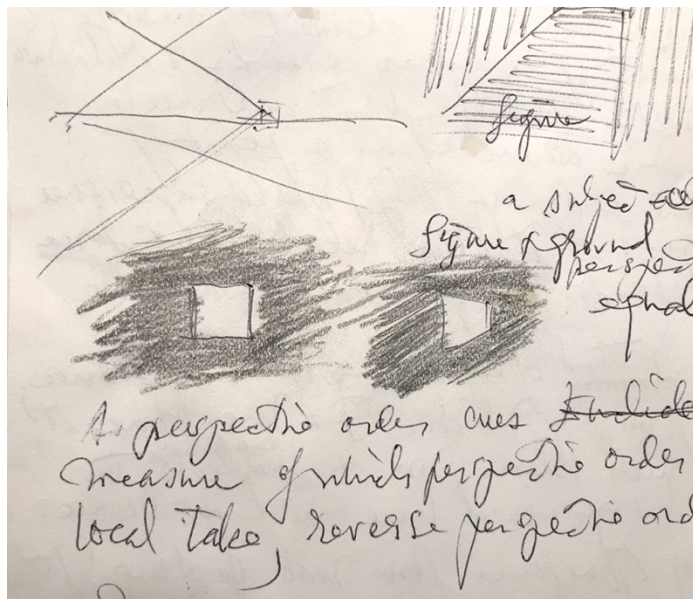 figure
a subject
figure & ground
perspec
equal
A perspective order cues
measure of which perspective order
local take, reverse perspective ord